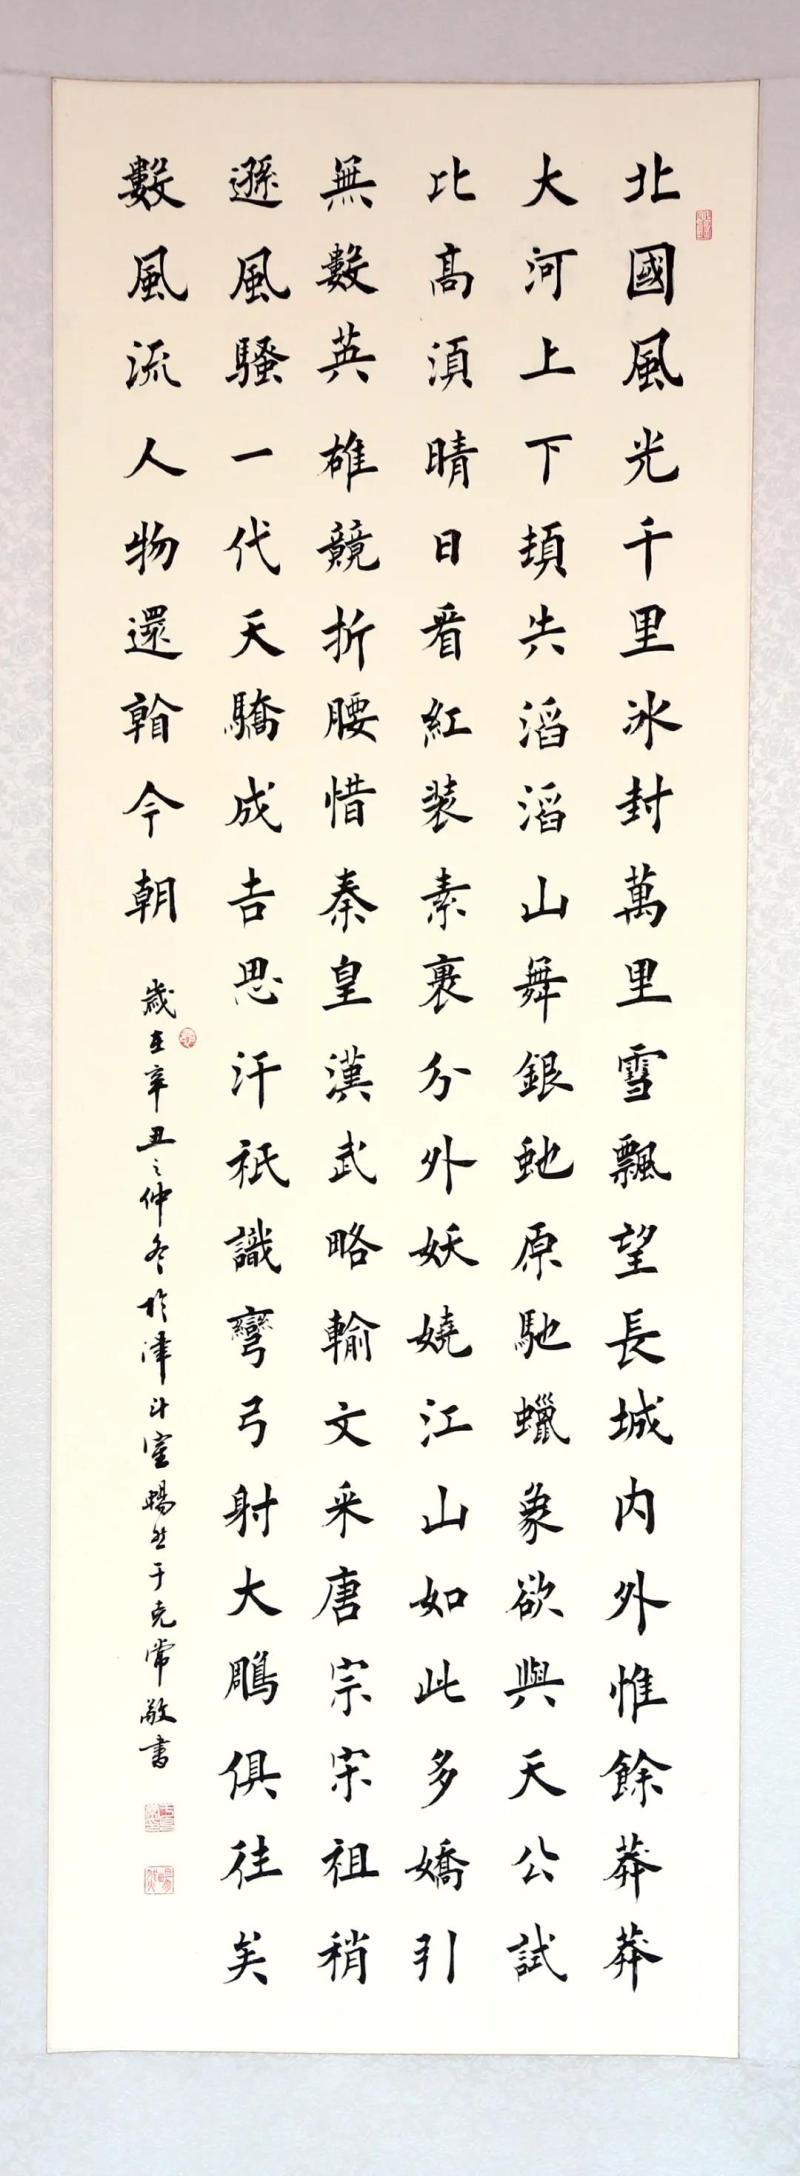 北國風光千里冰封萬里雪飄望長城内外惟餘莽莽
大河上下頓失滔滔山舞銀虵原馳蠟象欲與天公試
比高湏晴日看紅裝素裹分外妖嬈江山如此多嬌引
無數英雄競折腰惜秦皇漢武略輸文采唐宗宋祖稍
遜風騷一代天驕成吉思汗祇識彎弓射大鵰俱往矣
數風流人物還看今朝
歲在辛丑之仲冬於津斗室暢然于克常敬書